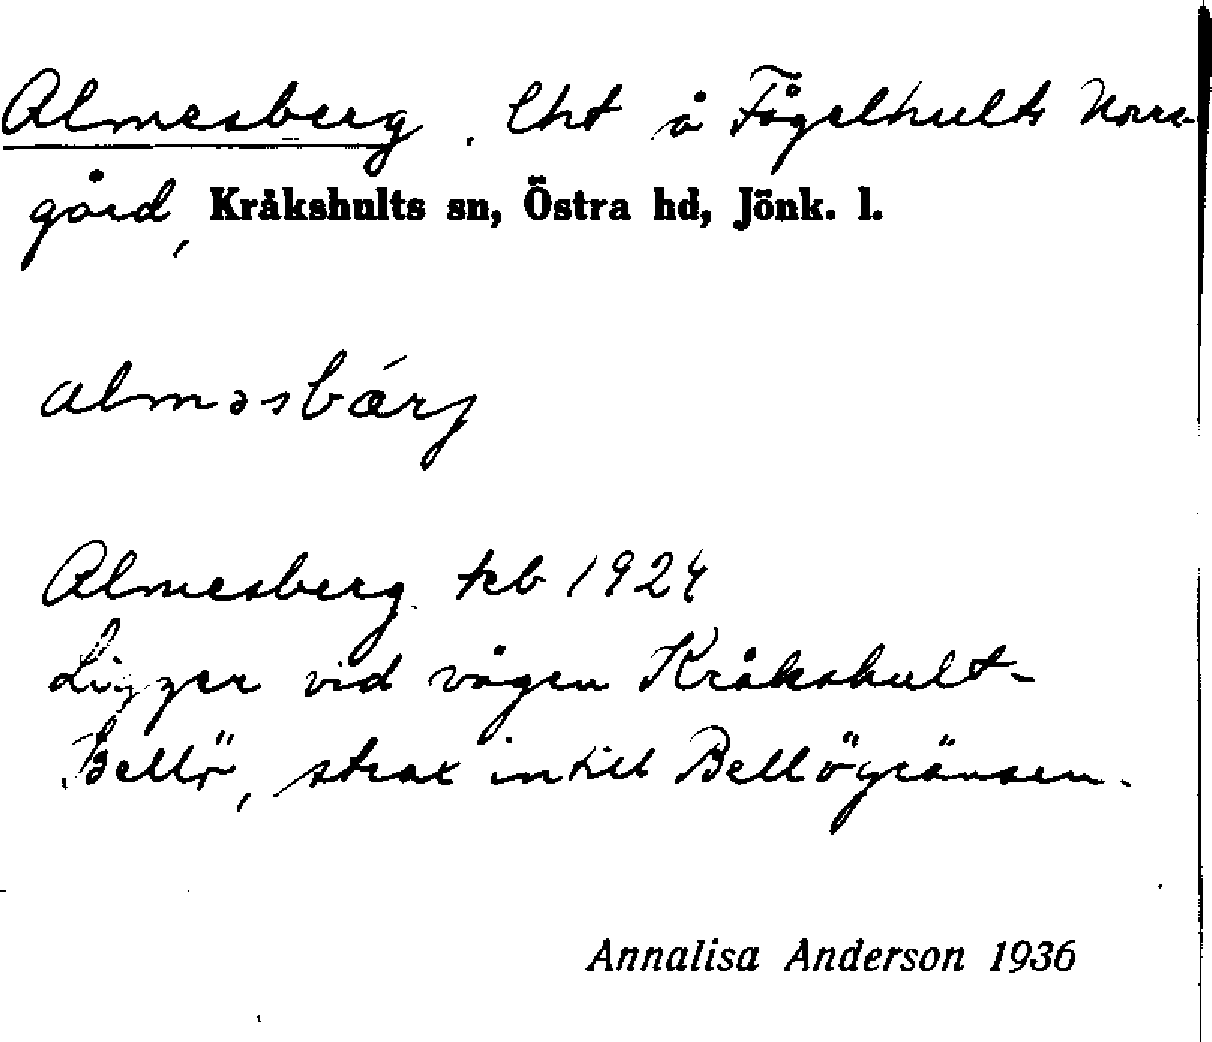 Almesberg. Lht å Fågelhults Norra
gård, Kråkshults sn, Östra hd, Jönk. l.
alməsbærj
Almesberg teb 1924
Ligger vid vägen Kråkshult-
Bellö, strax intill Bellögränsen.
Annalisa Anderson 1936